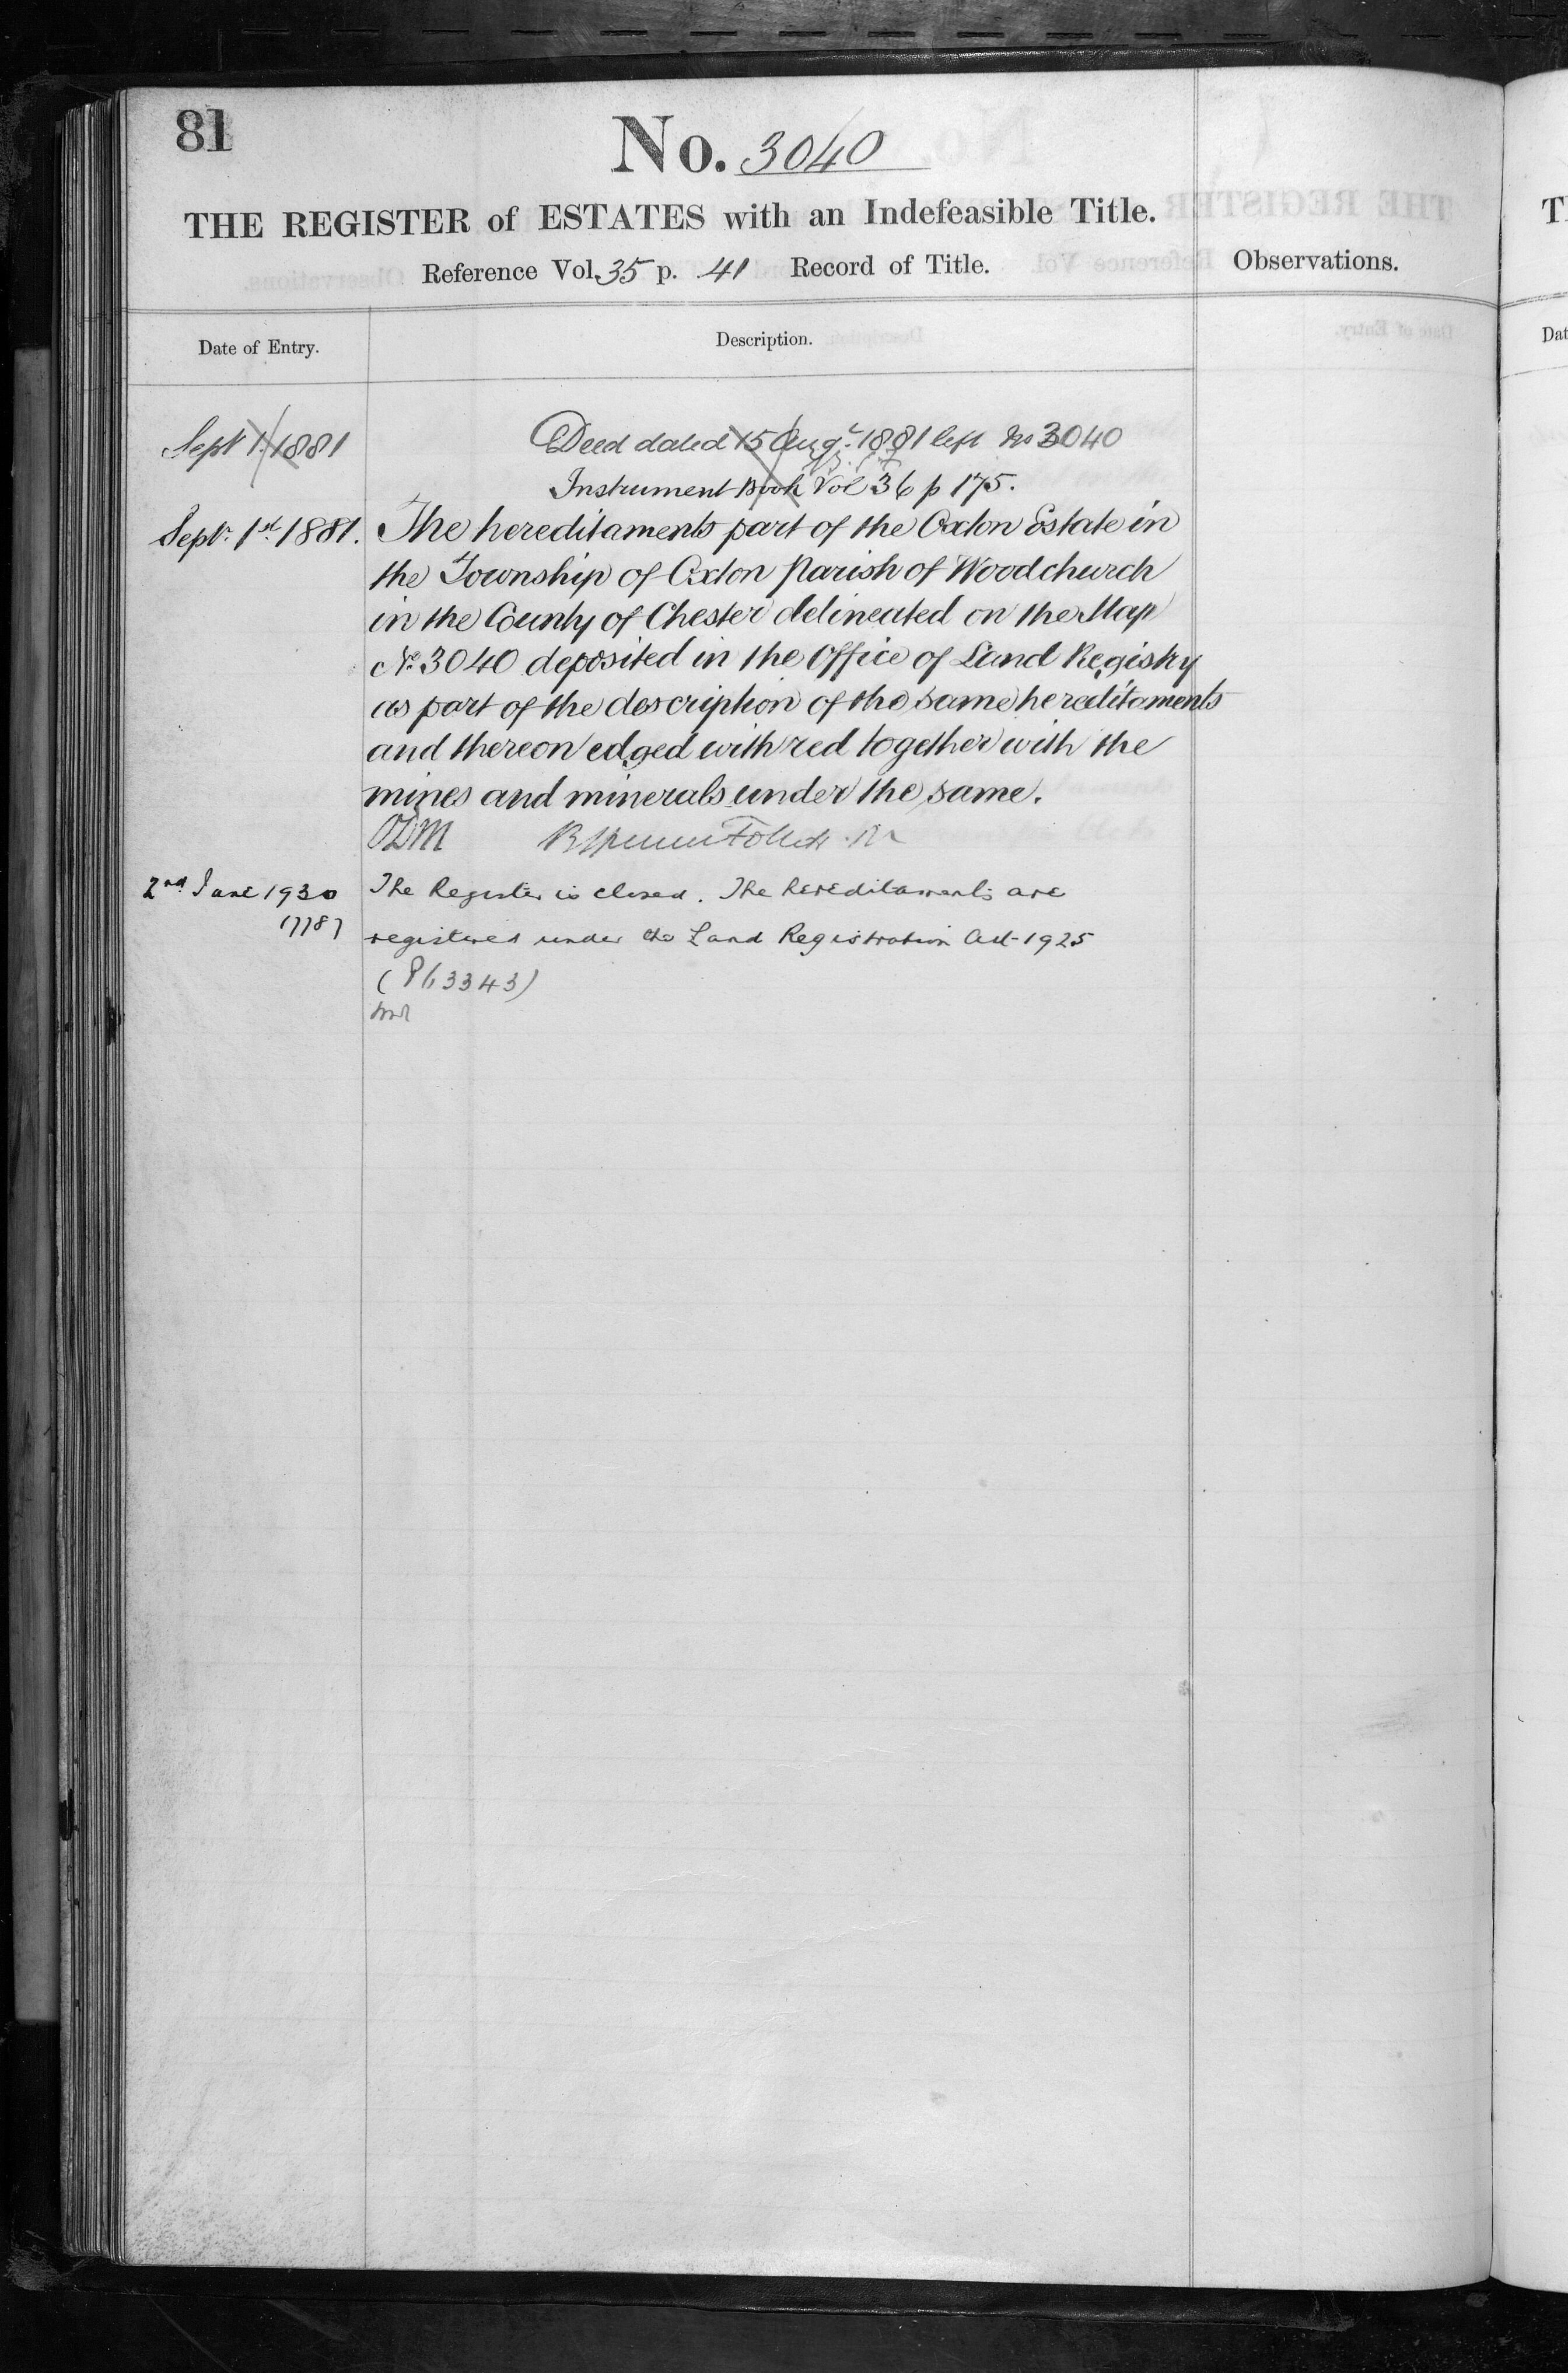 81
No. 3040
THE REGISTER of ESTATES with an Indefeasible Title.
Reference Vol. 35 p. 41 Record of Title.
Observations.
Date of Entry.
Description.
Sept 1. 1881
Deed dated 15 Augt. 1881 left No 3040
Instrument Book Vol 36 p 175.
Septr. 1st 1881.
The hereditaments part of the Oxton Estate in
the Township of Oxton Parish of Woodchurch
in the County of Chester delineated on the Map
No. 3040 deposited in the Office of Land Registry
as part of the description of the same hereditaments
and thereon edged with red together with the
mines and minerals under the same.
ODM
2nd June 1930
The Register is closed. The hereditaments are
registered under the Land Registration Act 1925